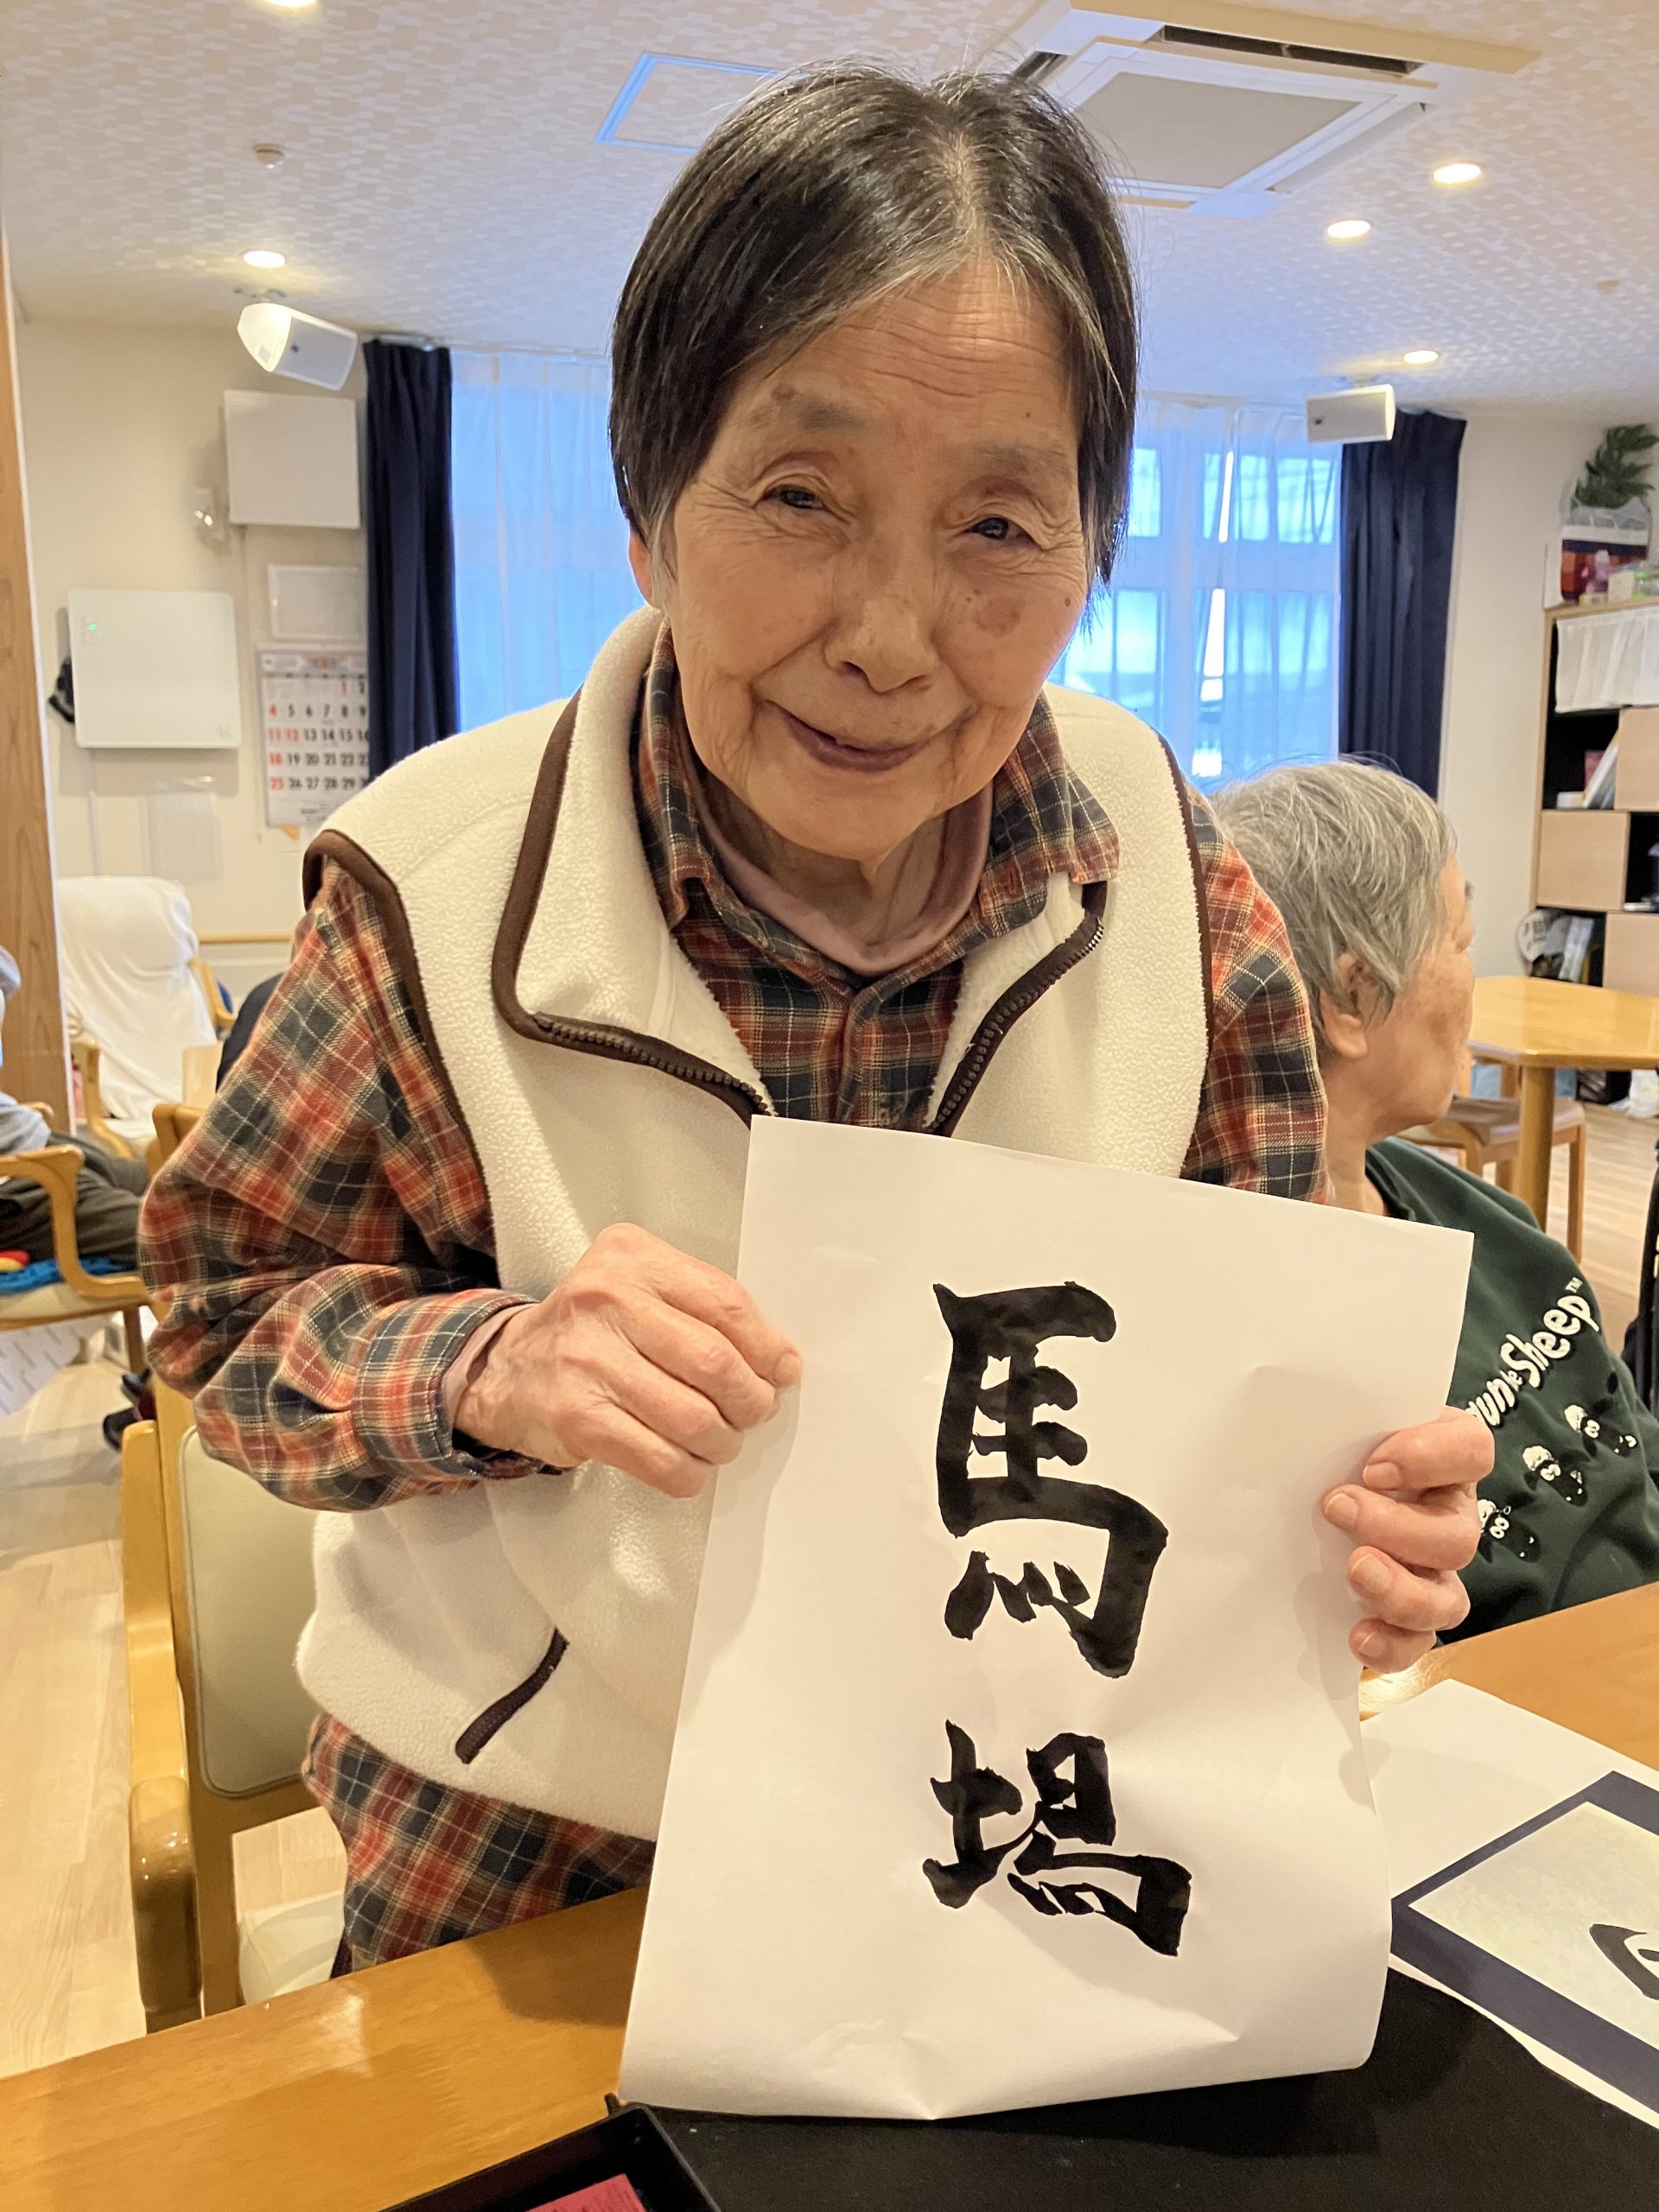 馬
場
4 5 6 7 8 9
11 12 13 14 15
18 19 20 21 22
25 26 27 28 29
Sheep™